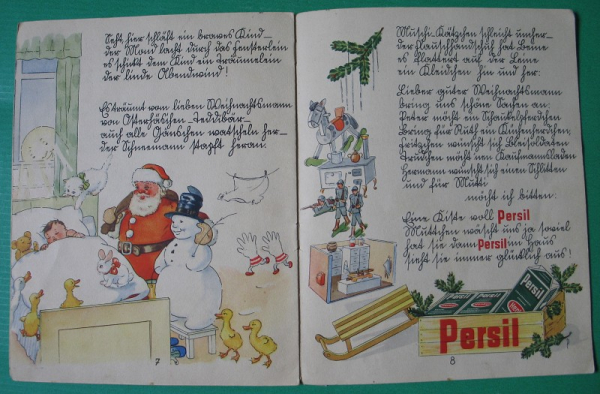 Seht, hier schläft ein braves Kind_
der Mond lacht durch das Fensterlein
es schickt dem Kind ein Träumelein
der linde Abendwind!
Es träumt vom lieben Weihnachtsmann
von Osterhäschen, Teddibär_
auch alle Gänschen watscheln her_
der Schneemann stapft heran.
7
Muschi-Kätzchen schleicht umher_
der Flauschhandschuh hat Beine
es flattert auf der Leine
ein Kleidchen hin und her.
Lieber guter Weihnachtsmann
bring uns schöne Sachen an:
Peter möcht ein Schaukelpferdchen
Bring für Ruth ein Küchenherdchen,
Fritzchen wünscht sich Bleisoldaten
Trudchen möcht nen Kaufmannsladen
Hermann wünscht sich einen Schlitten
und für Mutti
möcht ich bitten:
Eine Kiste voll Persil
Muttchen wäscht uns ja soviel
hat sie dann Persil im Haus
sieht sie immer glücklich aus!
Persil
Persil
8